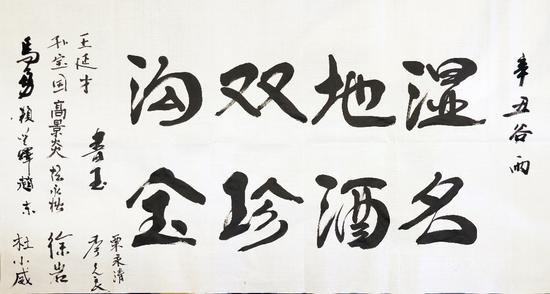 辛丑谷雨
湿地双沟
名酒珍宝
栗永清
书玉
王延才
孙宝国 高景炎 徐岩
马勇 赵东 杜小威